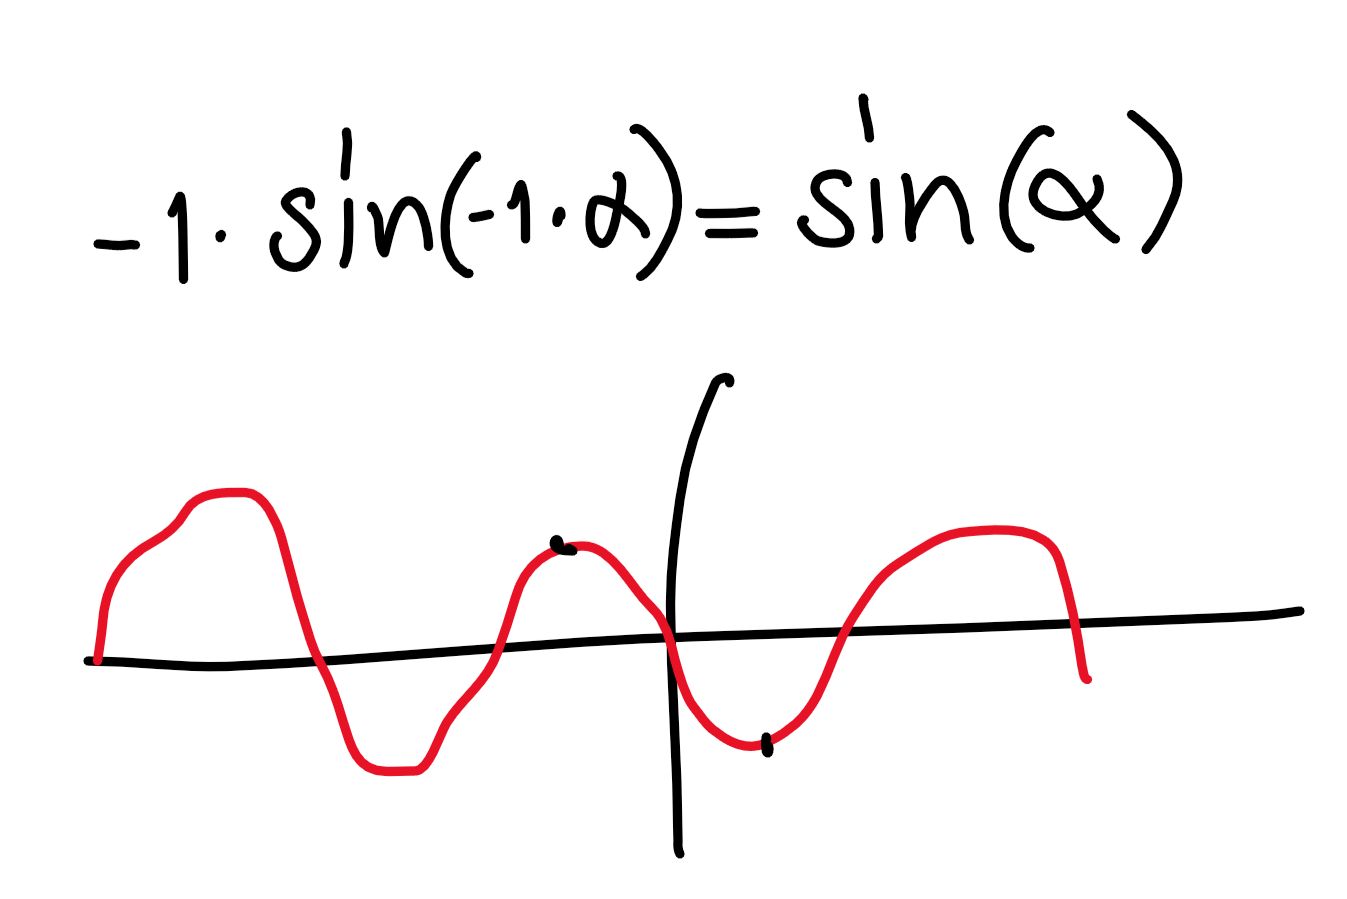 -1· sin(-1·α) = sin(α)